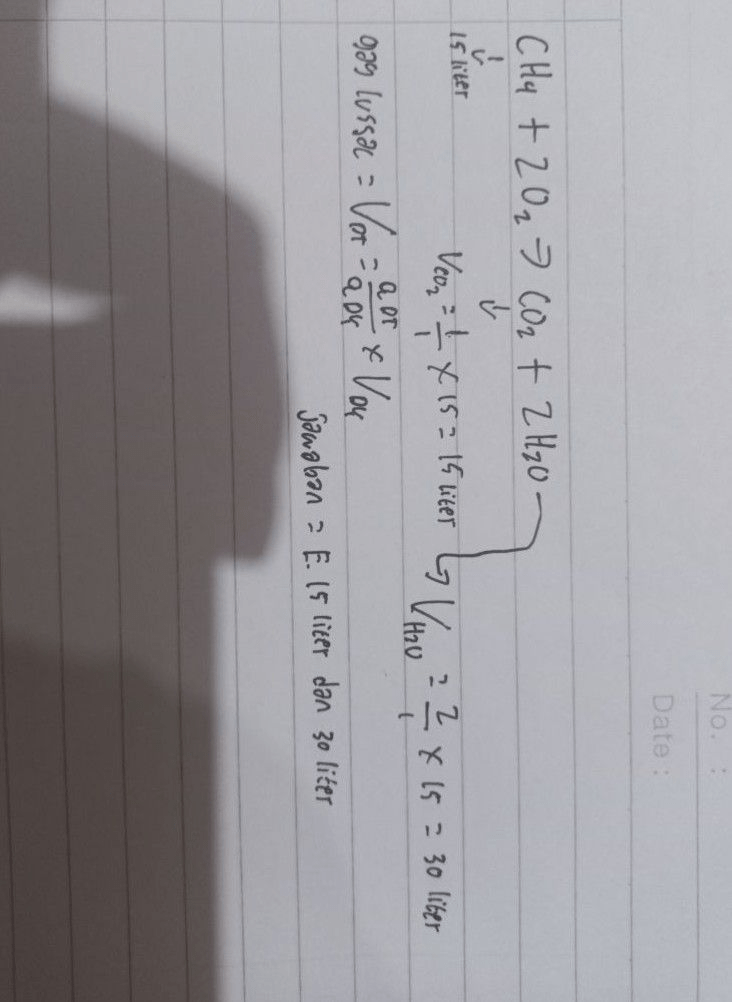 No. :
Date :
CH4 + 2O2 → CO2 + 2H2O
↓ ↓
15 liter
VCO2 = 1/1 x 15 = 15 liter ↳ VH2O = 2/1 x 15 = 30 liter
gay lussac = VDT = aDT/aDK x VDK
Jawaban = E. 15 liter dan 30 liter